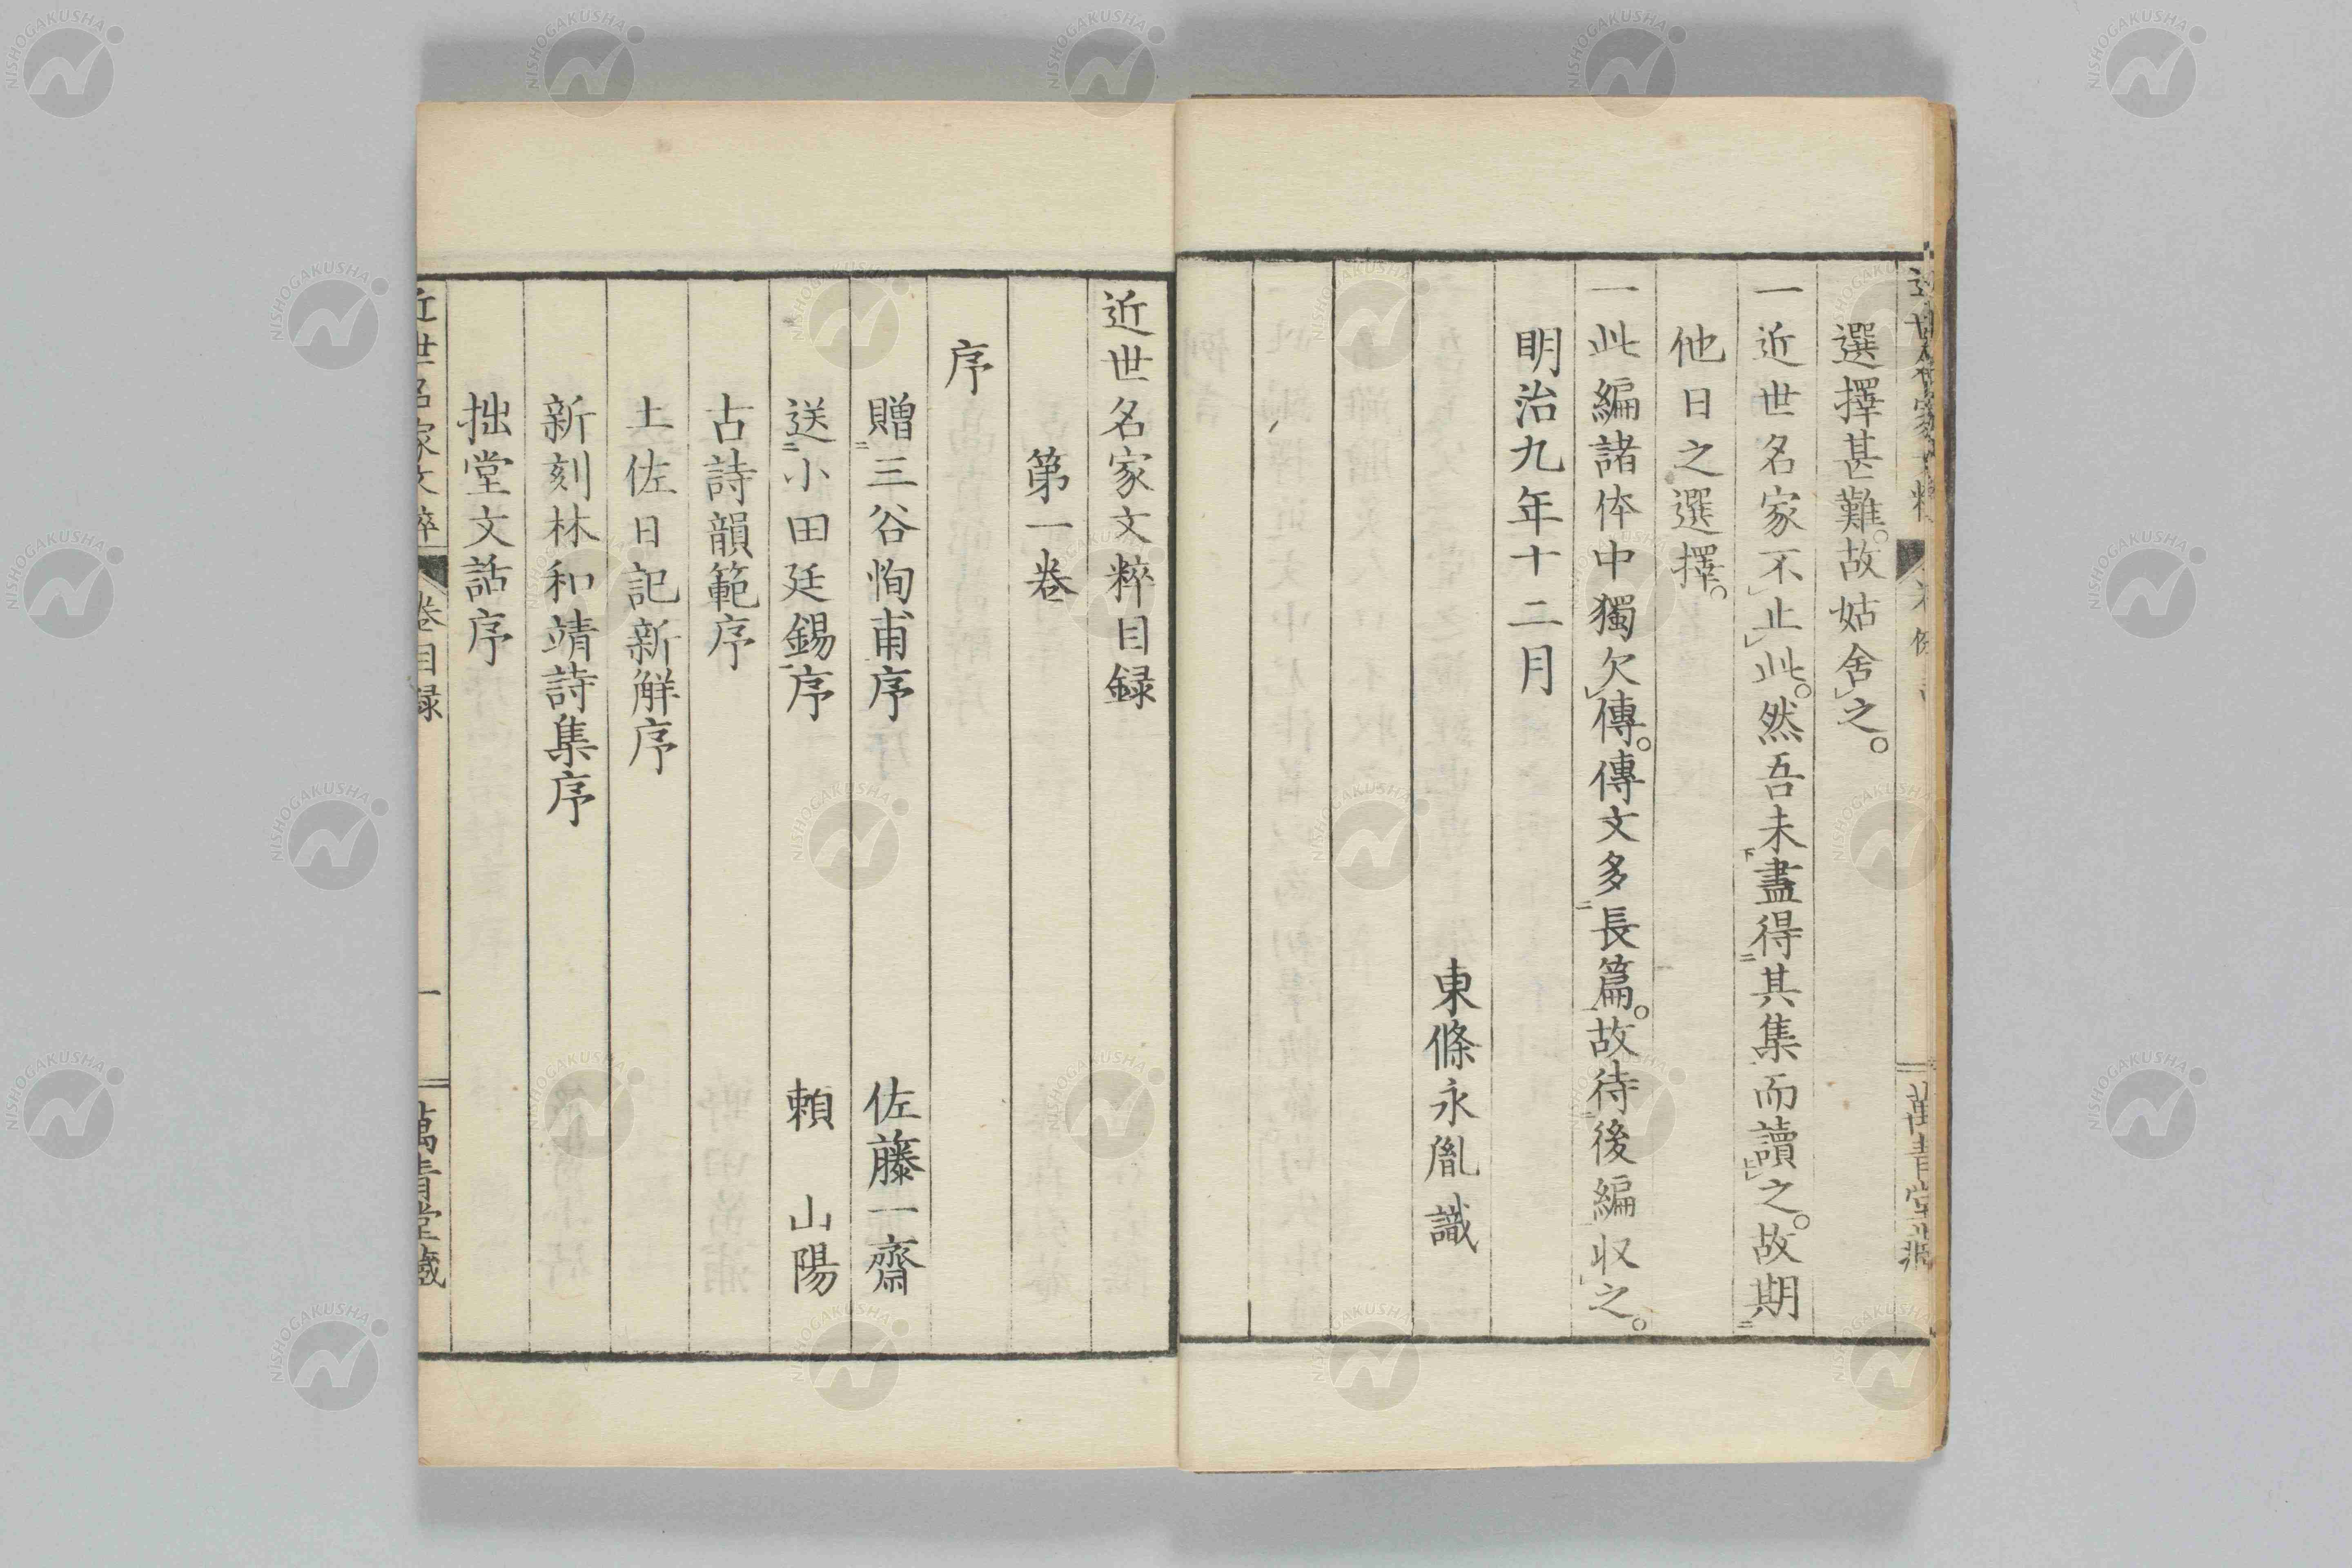 選擇甚難。故姑舍之。
一近世名家不止此。然吾未盡得其集而讀之。故期
他日之選擇。
一此編諸体中獨欠傳。傳文多長篇。故待後編収之。
明治九年十二月
東條永胤識
近世名家文粹目録
第一卷
序
贈三谷恂甫序 佐藤一齋
送小田廷錫序 賴 山陽
古詩韻範序
土佐日記新解序
新刻林和靖詩集序
拙堂文話序
近世名家文粹 卷目録 一 萬青堂藏